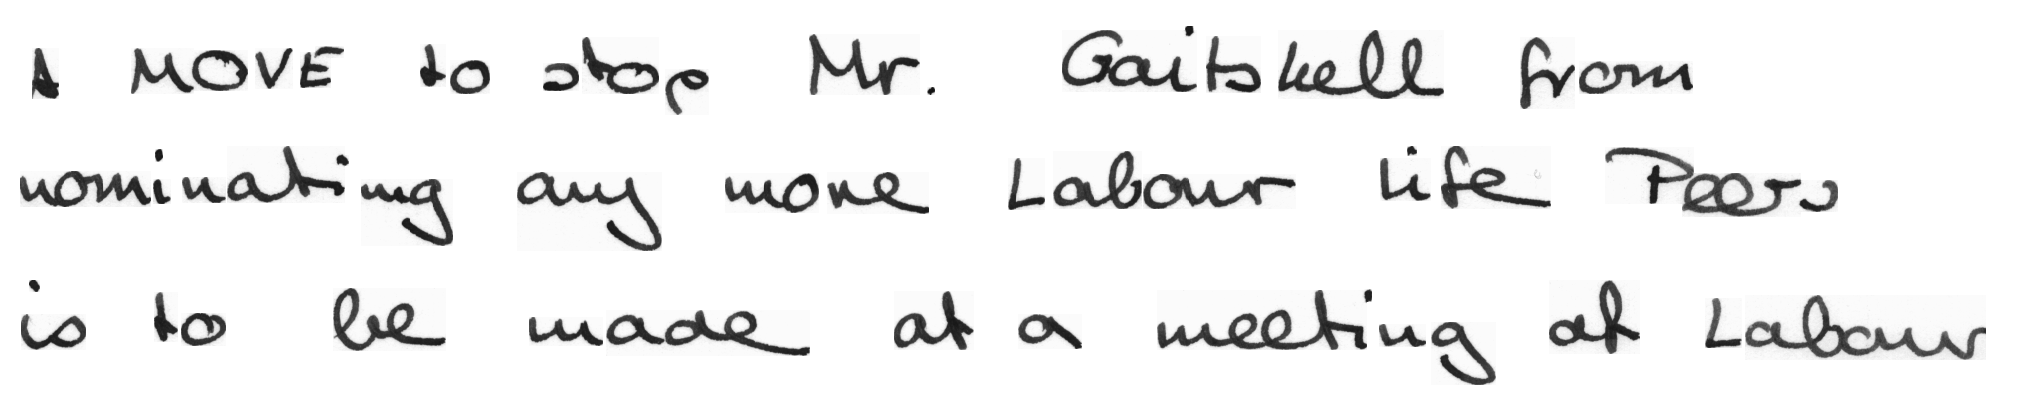 A MOVE to stop Mr. Gaitskell from
nominating any more Labour life Peers
is to be made at a meeting of Labour